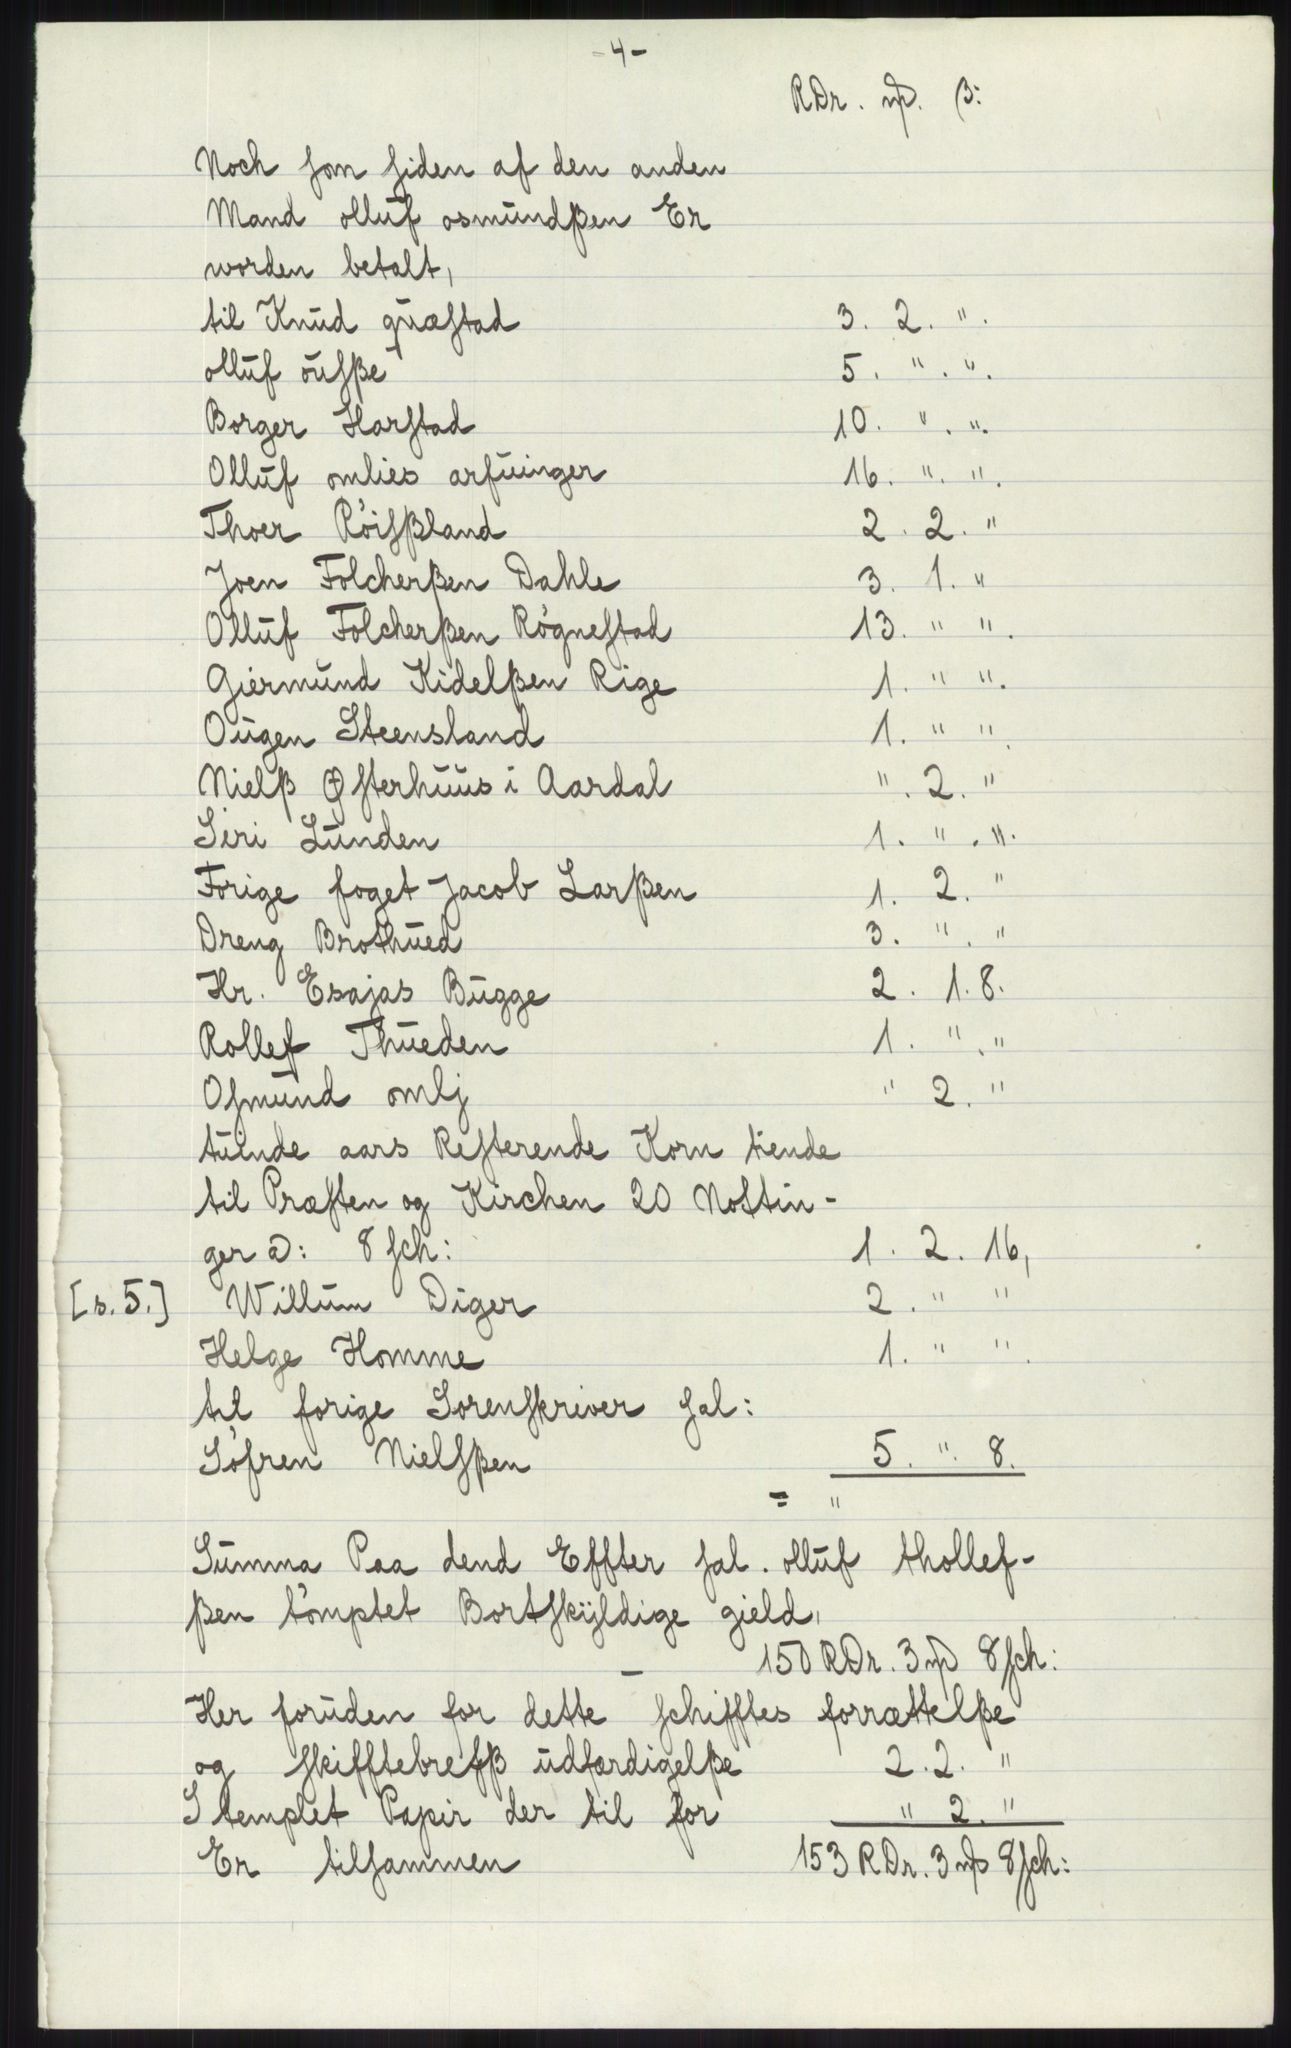 -4-
RDr. mƿ. β:
Noch som siden af den anden
Mand olluf osmundßen Er
worden betalt,
til Knud quæstad 3. 2. ".
olluf öusße 5. ". ".
Borger Harstad 10. ". ".
Olluf omlies arfuinger 16. ". ".
Thoer Röisßland 2. 2. "
Joen Folcherßen Dahle 3. 1. "
Olluf Folcherßen Rögnestad 13. " ".
Giermund Kidelßen Rige 1. " ".
Ougen Steensland 1. " ".
Nielß Østerhuus i Aardal ". 2. "
Siri Lunden 1. ". ".
Forige foget Jacob Larßen 1. 2. "
Dreng Brothued 3. ". "
Hr. Esajas Bugge 2. 1. 8.
Rollef Thueden 1. ". "
Osmund omlj " 2. "
tuinde aars Resterende Korn tiende
til Præsten og Kirchen 20 Nottin-
ger a: 8 sch: 1. 2. 16,
[s. 5.] Willum Diger 2. " "
Helge Homme 1. " ".
til forige Sorenskriver sal:
Söfren Nielsßen 5. ". 8.
= "
Summa Paa dend Effter sal. olluf thollef-
ßen tömptet Bortskÿldige gield,
— 150 RDr. 3 mƿ 8 sch:
Her foruden for dette schifftes forrættelße
og skifftebrefß udfærdigelße 2. 2. "
Stemplet Papir der til for " 2. "
Er tilsammen 153 RDr. 3 mƿ 8 sch: